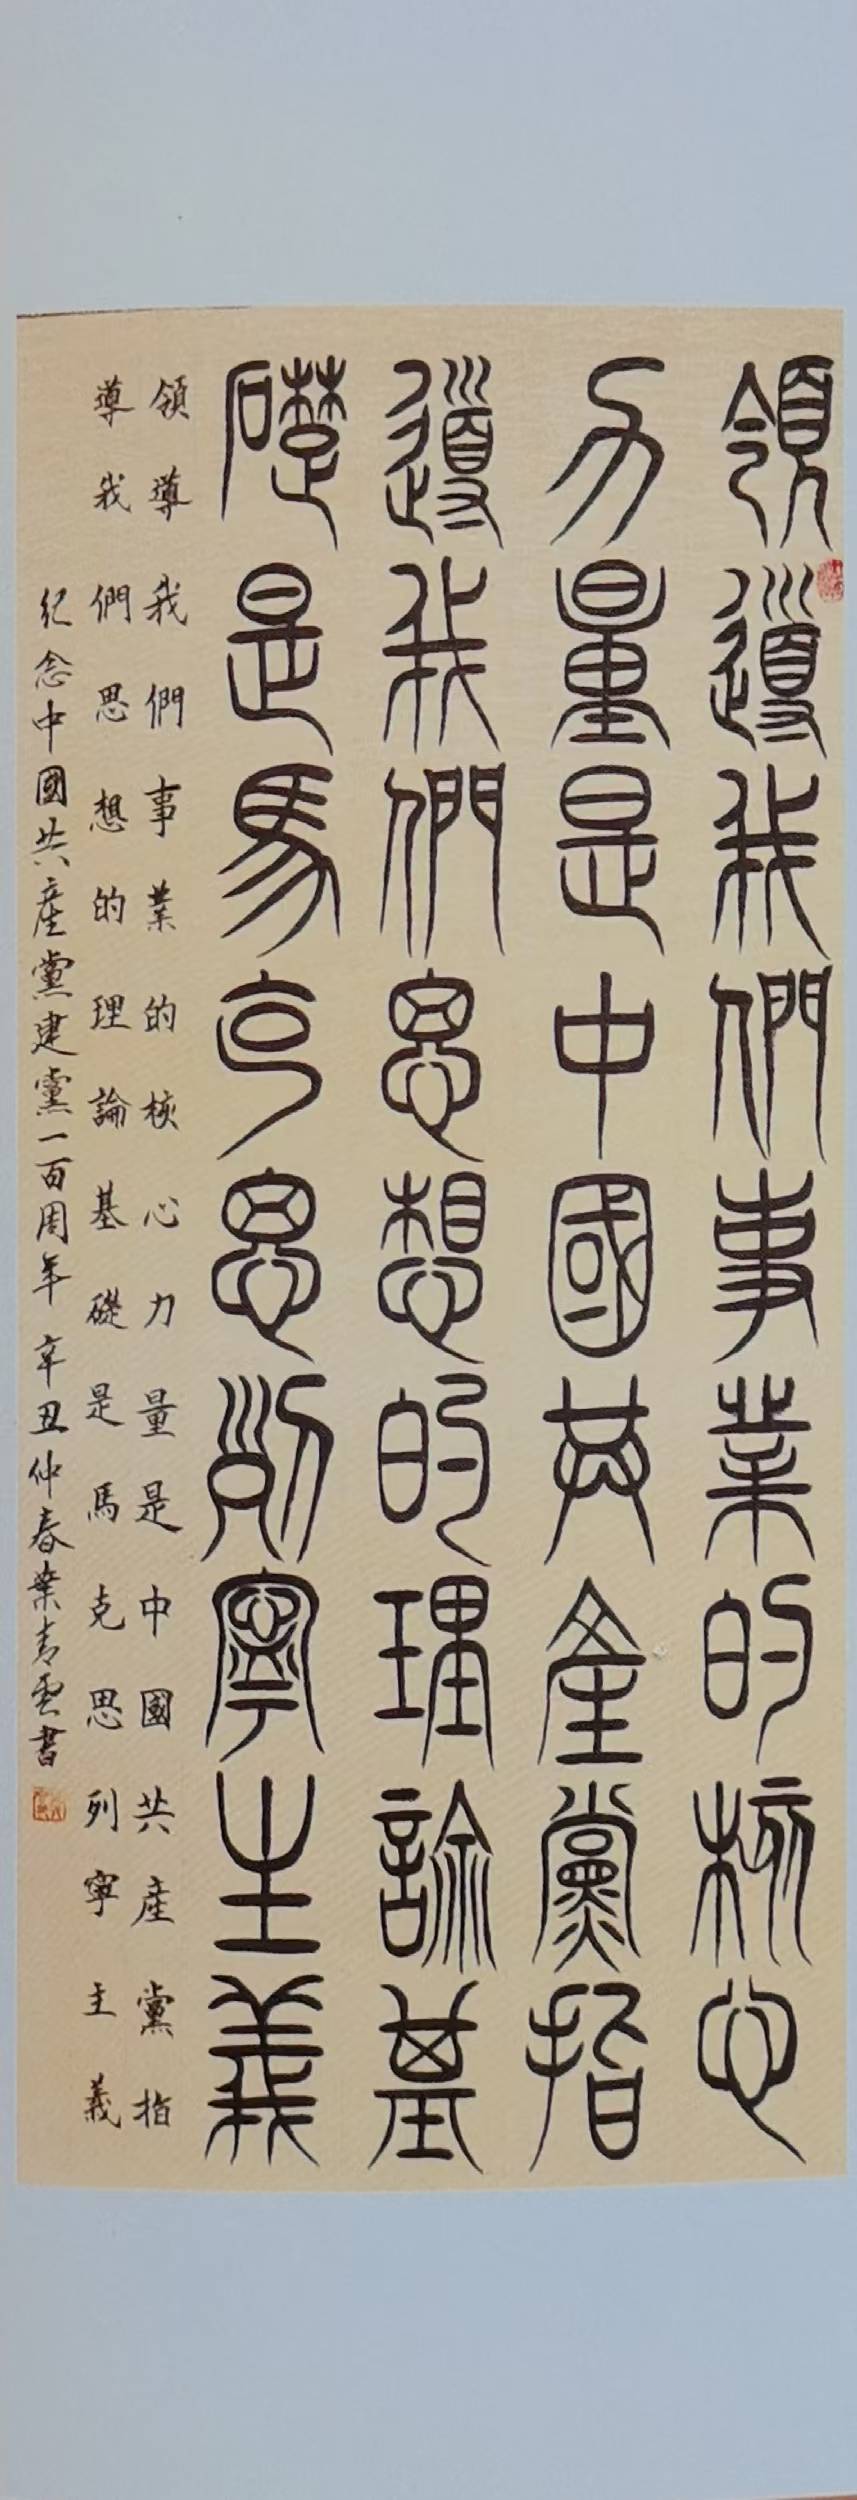 領導我們事業的核心
力量是中國共產黨指
導我們思想的理論基
礎是馬克思列寧主義
領導我們事業的核心力量是中國共產黨指
導我們思想的理論基礎是馬克思列寧主義
紀念中國共產黨建黨一百周年 辛丑仲春葉青雲書